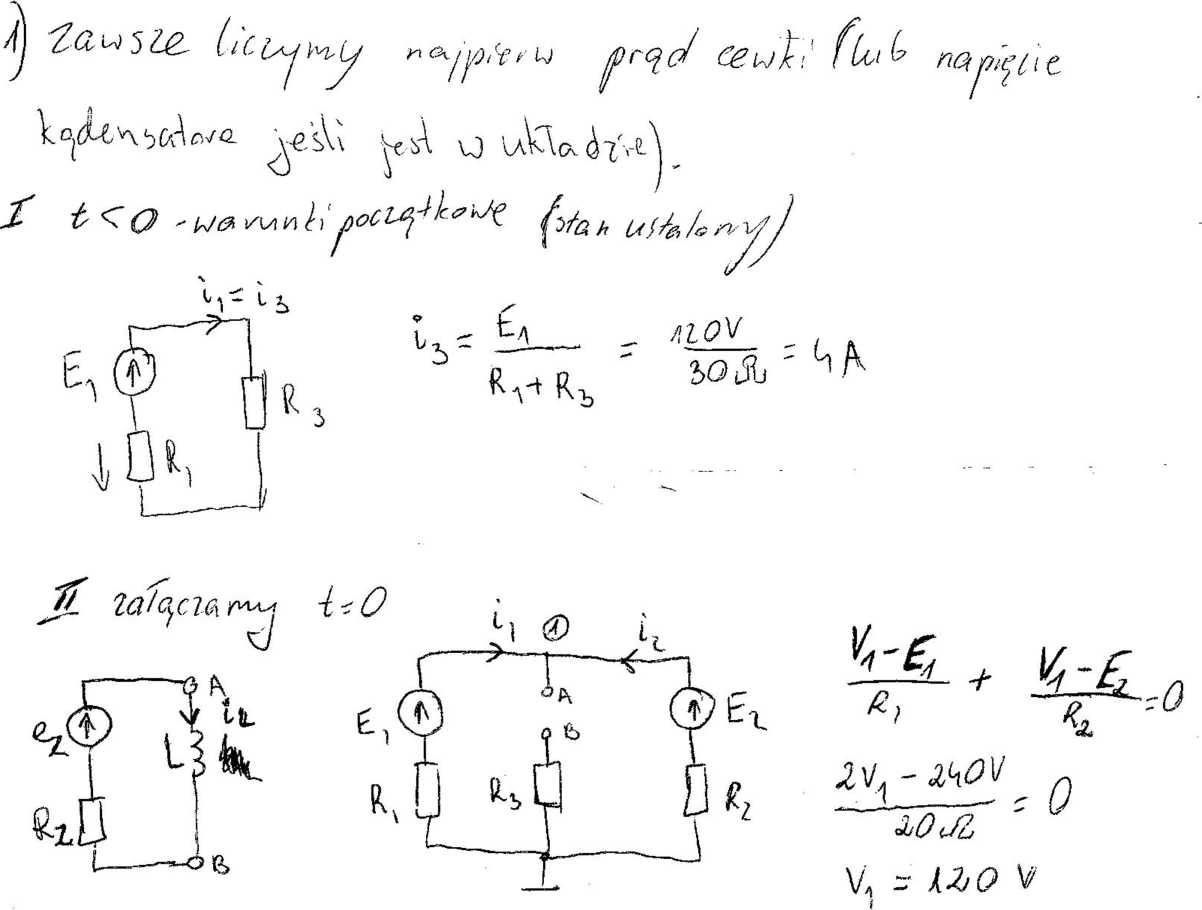 1) zawsze liczymy najpierw prąd cewki (lub napięcie
kądensatora jeśli jest w układzie).
I t<0 - warunki początkowe (stan ustalony)
i₁=i₃
E₁
R₁
R₃
i₃ = E₁/(R₁+R₃) = 120V/30Ω = 4A
II załączamy t=0
e_z
R_z
A
i_L
L
B
i₁
①
i₂
E₁
A
B
E₂
R₁
R₃
R₂
(V₁-E₁)/R₁ + (V₁-E₂)/R₂ = 0
(2V₁-240V)/20Ω = 0
V₁ = 120 V